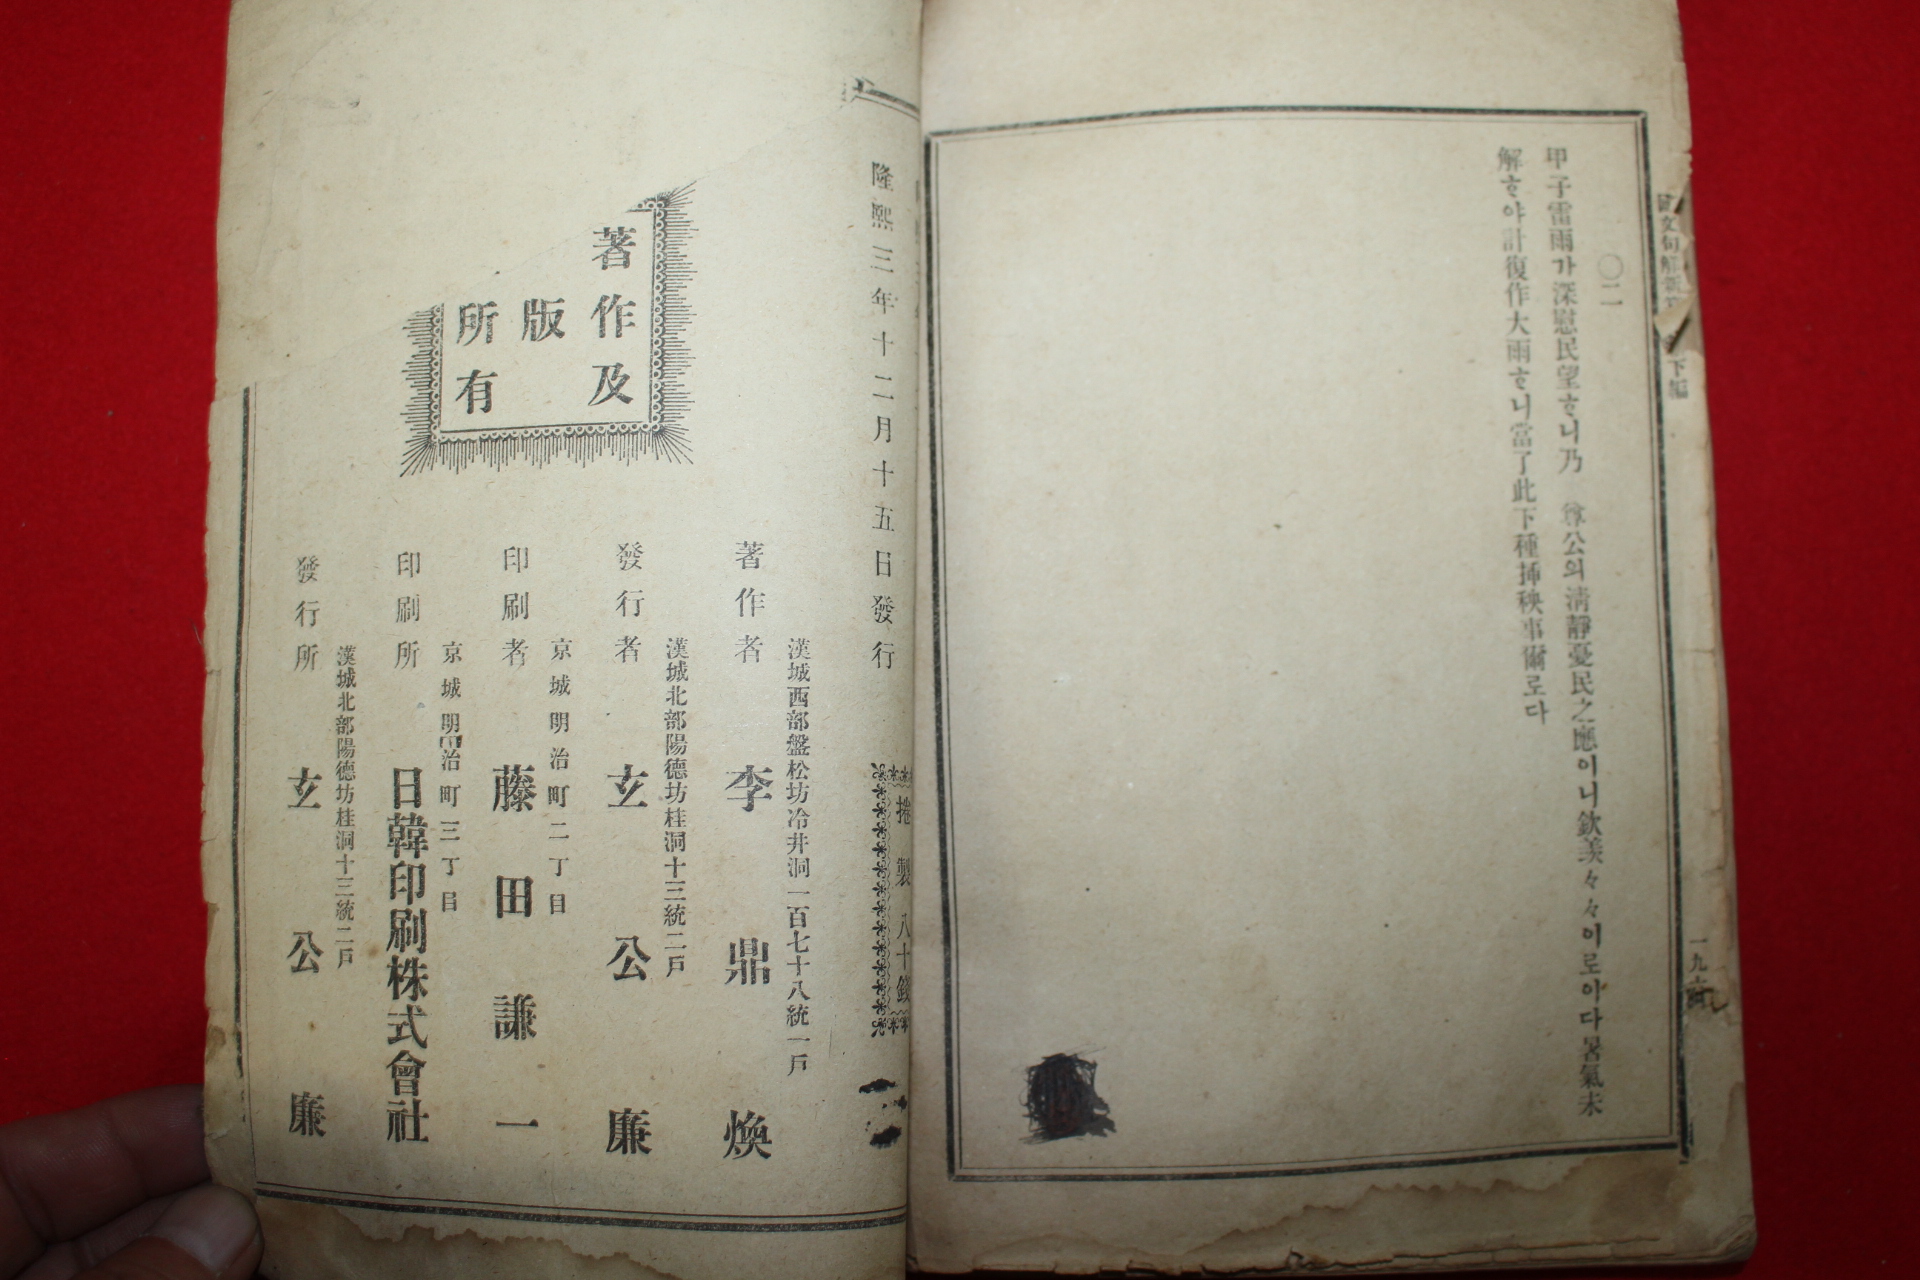 〇二
甲子雷雨가深慰民望ᄒᆞ니乃 尊公의淸靜憂民之應이니欽羡々々이로아다暑氣未
解ᄒᆞ야計復作大雨ᄒᆞ니當了此下種揷秧事爾로다
下編
隆熙三年十二月十五日發行
製 八十錢
著作及
版
所有
漢城西部盤松坊冷井洞一百七十八統一戶
著作者 李鼎煥
漢城北部陽德坊桂洞十三統二戶
發行者 玄公廉
京城明治町二丁目
印刷者 藤田謙一
京城明治町三丁目
印刷所 日韓印刷株式會社
漢城北部陽德坊桂洞十三統二戶
發行所 玄公廉